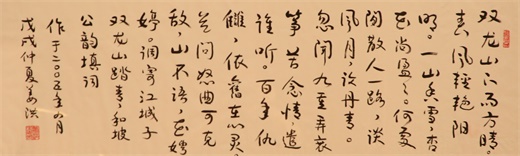 双龙山下雨方晴。
春风轻艳阳
明。一山香雪，杏
花尚盈盈。何处
闲散人一路，谈
风月，议丹青。
忽闻九重弄哀
筝苦念情，遣
谁听。百年仇
雠，依旧在心灵
若问怒曲可克
敌，山不语，花娉
婷。调寄江城子
双龙山踏青，和坡
公韵填词
作于二〇〇五年四月
戊戌仲夏姜洪